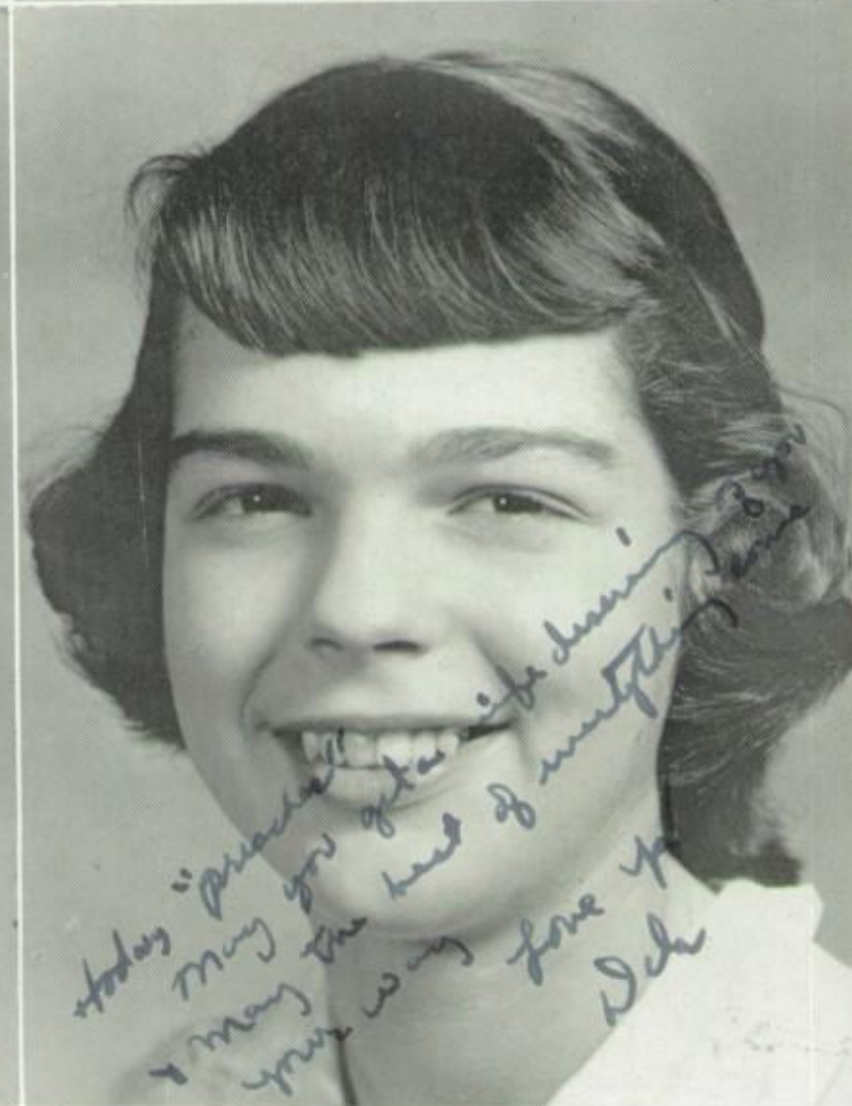 today "preacher"
May you get a wife deserving of you
& may the best of everything come
your way
Love ya
Deb